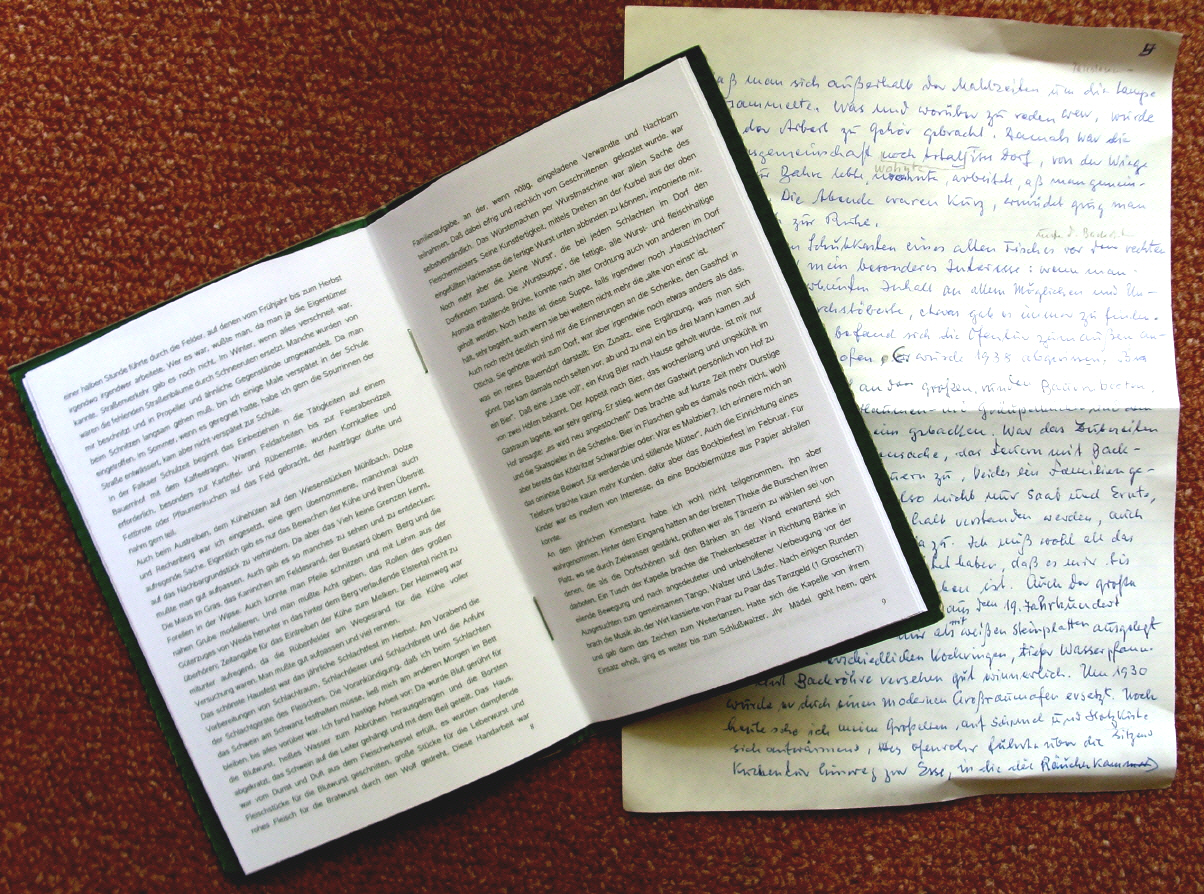 einer halben Stunde führte durch die Felder, auf denen vom Frühjahr bis zum Herbst
irgendwo irgendwer arbeitete. Wer es war, wußte man, da man ja die Eigentümer
kannte. Straßenverkehr gab es noch nicht. Im Winter, wenn alles verschneit war,
waren die fehlenden Straßenbäume durch Schneerutenersetzt. Manche wurden von
mir beschnitzt und in Propeller und ähnliche Gegenstände umgewandelt. Da man
beim Schnitzen langsam gehen muß, bin ich einige Male verspätet in der Schule
eingetroffen. Im Sommer, wenn es geregnet hatte, habe ich gern die Spurrinnen der
Straße entwässert, kam aber nicht verspätet zur Schule.
In der Falkaer Schulzeit beginnt das Einbeziehen in die Tätigkeiten auf einem
Bauernhof mit dem Kaffeetragen. Waren Feldarbeiten bis zur Feierabendzeit
erforderlich, besonders zur Kartoffel- und Rübenernte, wurden Kornkaffee und
Fettbrote oder Pflaumenkuchen auf das Feld gebracht, der Austräger durfte und
nahm gern teil.
Auch beim Austreiben, dem Kühehüten auf den Wiesenstücken Mühlbach, Dolze
und Rechenberg war ich eingesetzt, eine gern übernommene, manchmal auch
aufregende Sache. Eigentlich gab es nur das Bewachen der Kühe und ihren Übertritt
auf das Nachbargrundstück zu verhindern. Da aber das Vieh keine Grenzen kennt,
mußte man gut aufpassen. Auch gab es so manches zu sehen und zu entdecken:
Die Maus im Gras, das Kaninchen am Felderrand, der Bussard überm Berg und die
Forellen in der Wipse. Auch konnte man Pfeile schnitzen und mit Lehm aus der
nahen Grube modellieren. Und man mußte Acht geben, das Rollen des großen
Güterzuges von Weida herunter im das hinter dem Berg verlaufende Elstertal nicht zu
überhören: Zeitangabe für das Eintreiben der Kühe zum Melken. Der Heimweg war
mitunter aufregend, da die Rübenfelder am Wegesrand für die Kühe voller
Versuchung waren. Man mußte gut aufpassen und viel rennen.
Das schönste Hausfest war das jährliche Schlachtfest im Herbst. Am Vorabend die
Vorbereitungen von Schlachtraum, Schlachtleiter und Schlachtbrett und die Anfuhr
der Schlachtgeräte des Fleischers. Die Vorankündigung, daß ich beim Schlachten
das Schwein am Schwanz festhalten müsse, ließ mich am anderen Morgen im Bett
bleiben, bis alles vorüber war. Ich fand hastige Arbeit vor: Da wurde Blut gerührt für
die Blutwurst, heißes Wasser zum Abbrühen herausgetragen und die Borsten
abgekratzt, das Schwein auf die Leiter gehängt und mit dem Beil geteilt. Das Haus,
war vom Dunst und Duft aus dem Fleischerkessel erfüllt, es wurden dampfende
Fleischstücke für die Blutwurst geschnitten, große Stücke für die Leberwurst und
rohes Fleisch für die Bratwurst durch den Wolf gedreht. Diese Handarbeit war
8
Familienaufgabe, an der, wenn nötig, eingeladene Verwandte und Nachbarn
teilnahmen. Daß dabei eifrig und reichlich vom Geschnittenen gekostet wurde, war
selbstverständlich. Das Würstemachen per Wurstmaschine war allein Sache des
Fleischermeisters. Seine Kunstfertigkeit, mittels Drehen an der Kurbel aus der oben
eingefüllten Hackmasse die fertige Wurst unten abbinden zu können, imponierte mir.
Noch mehr aber die „kleine Wurst“, die bei jedem Schlachten im Dorf den
Dorfkindern zustand. Die „Wurstsuppe“, die fettige, alle Wurst- und fleischhaltige
Aromata enthaltende Brühe, konnte nach alter Ordnung auch von anderen im Dorf
geholt werden. Noch heute ist diese Suppe, falls irgendwer noch „Hausschlachten“
hält, sehr begehrt, auch wenn sie bei weitem nicht mehr die „alte von einst“ ist.
Auch noch recht deutlich sind mir die Erinnerungen an die Schenke, den Gasthof in
Otticha. Sie gehörte wohl zum Dorf, war aber irgendwie noch etwas anders als das,
was ein reines Bauerndorf darstellt. Ein Zusatz, eine Ergänzung, was man sich
gönnt. Das kam damals noch selten vor, ab und zu mal ein bis drei Mann kamen „auf
ein Bier“. Daß eine „Lase voll“, ein Krug Bier nach Hause geholt wurde, ist mir nur
von zwei Höfen bekannt. Der Appetit nach Bier, das wochenlang und ungekühlt im
Gastraum lagerte, war sehr gering. Er stieg, wenn der Gastwirt persönlich von Hof zu
Hof ansagte: „es wird neu angestochen!“ Das brachte auf kurze Zeit mehr Durstige
und die Skatspieler in die Schenke. Bier in Flaschen gab es damals noch nicht, wohl
aber bereits das Köstritzer Schwarzbier oder: War es Malzbier?. Ich erinnere mich an
das ominöse Beiwort „für werdende und stillende Mütter“. Auch die Einrichtung eines
Telefons brachte kaum mehr Kunden, dafür aber das Bockbierfest im Februar. Für
Kinder war es insofern von Interesse, da eine Bockbiermütze aus Papier abfallen
konnte.
An dem jährlichen Kirmestanz, habe ich wohl nicht teilgenommen, ihn aber
wahrgenommen. Hinter dem Eingang hatten an der breiten Theke die Burschen ihren
Platz, wo sie durch Zielwasser gestärkt, prüften wer als Tänzerin zu wählen sei von
denen, die als die Dorfschönen auf den Bänken an der Wand erwartend sich
darboten. Ein Tusch der Kapelle brachte die Thekenbesetzer in Richtung Bänke in
eilende Bewegung und nach angedeuteter und unbeholfener Verbeugung vor der
Ausgeguckten zum gemeinsamen Tango, Walzer und Läufer. Nach einigen Runden
brach die Musik ab, der Wirt kassierte von Paar zu Paar das Tanzgeld (1 Groschen?)
und gab dann das Zeichen zum Weitertanzen. Hatte sich die Kapelle von ihrem
Einsatz erholt, ging es weiter bis zum Schlußwalzer. „Ihr Mädel geht heim, geht
9
aß man sich außerhalb der Mahlzeiten um die Lampe
sammelte. Was und worüber zu reden war, wurde
der Arbeit zu Gehör gebracht. Damals war die
gemeinschaft noch im Dorf, von der Wiege
zur Bahre lebte, wohnte, arbeitete, aß man gemein-
Die Abende waren kurz, ermüdet ging man
zur Ruhe.
Schubkasten eines alten Tisches vor dem rechten
mein besonderes Interesse: wenn man
Inhalt an allem Möglichen und Un-
durchstöberte, etwas gab es immer zu finden.
befand sich die
wurde 1935 abgerissen.
an den großen, runden
gebacken. War das Zubereiten
das mit Back-
zu, beides ein Familienge-
also nicht nur Saat und Ernte,
verstanden werden, auch
zu. Ich muß wohl als das
haben, daß es mir bis
ist. Auch der große
aus dem 19. Jahrhundert
mit weißen Steinplatten ausgelegt
Kochringen, tiefer Wasserpfann-
und Backröhre versehen gut erinnerlich. Um 1930
wurde er durch einen modernen Großraumofen ersetzt. Noch
heute sehe ich meine Großeltern, auf Schemel und Holzkiste
sich aufwärmend, sitzend
das Ofenrohr führte über die
Küchentür hinweg zur Esse, in die die Räucherkammer